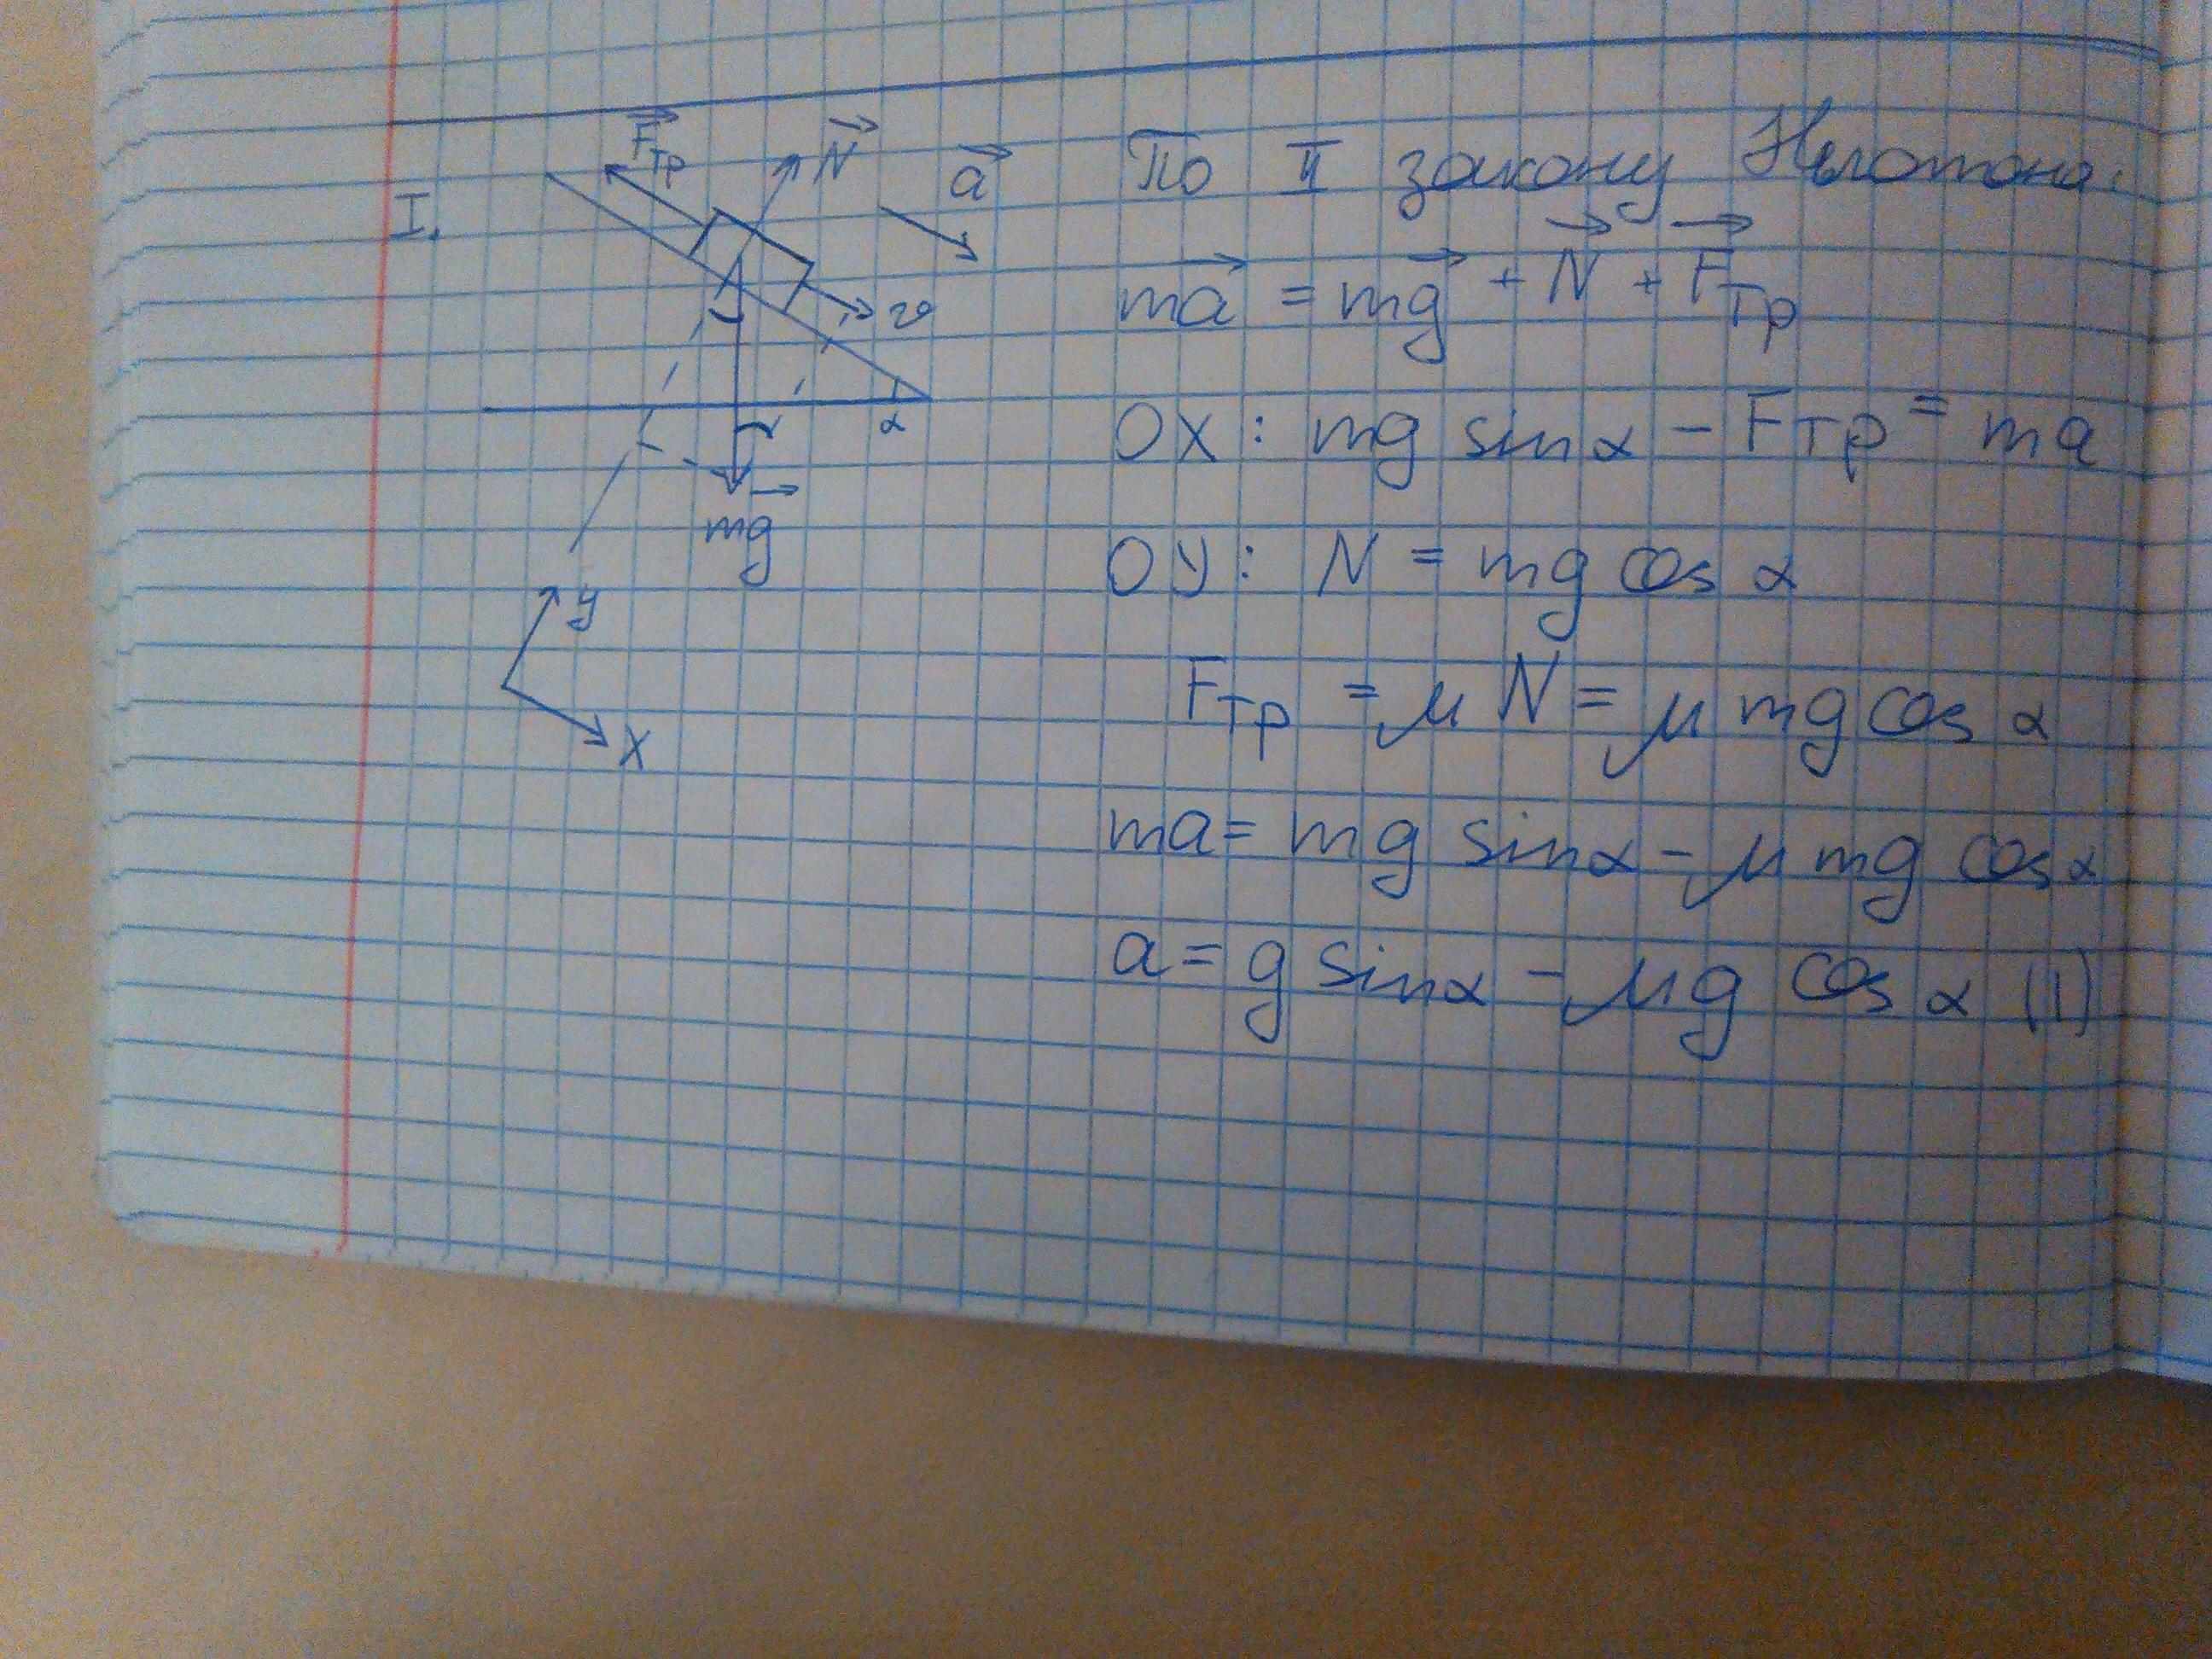 I.
Fтр
N
a
v
α
mg
y
x
По II закону Ньютона:
ma = mg + N + Fтр
OX: mg sinα - Fтр = ma
OY: N = mg cos α
Fтр = μN = μmg cos α
ma = mg sinα - μmg cosα
a = g sinα - μg cos α (1)